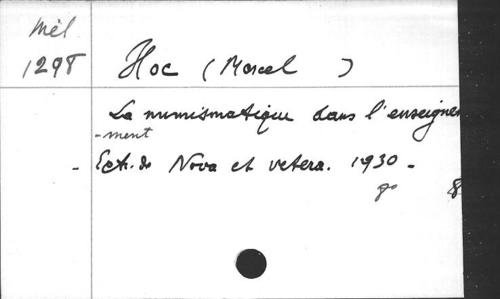 Mél.
1298
Hoc (Marcel )
La numismatique dans l'enseigne
-ment
- Ext. de Nova et vetera. 1930 -
8